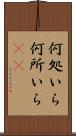 何処いら
何所いら